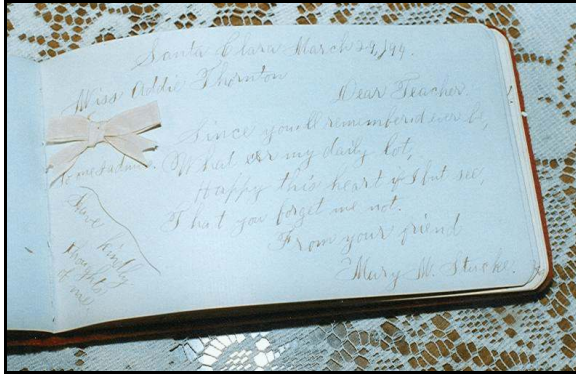 Santa Clara March 29, '94.
Miss Addie Thornton
Dear Teacher
Since you'll remembered ever be,
What e'er my daily lot,
Happy this heart if I but see,
That you forget me not.
From your friend
Mary M.
To me
Have kindly
thoughts
of me.